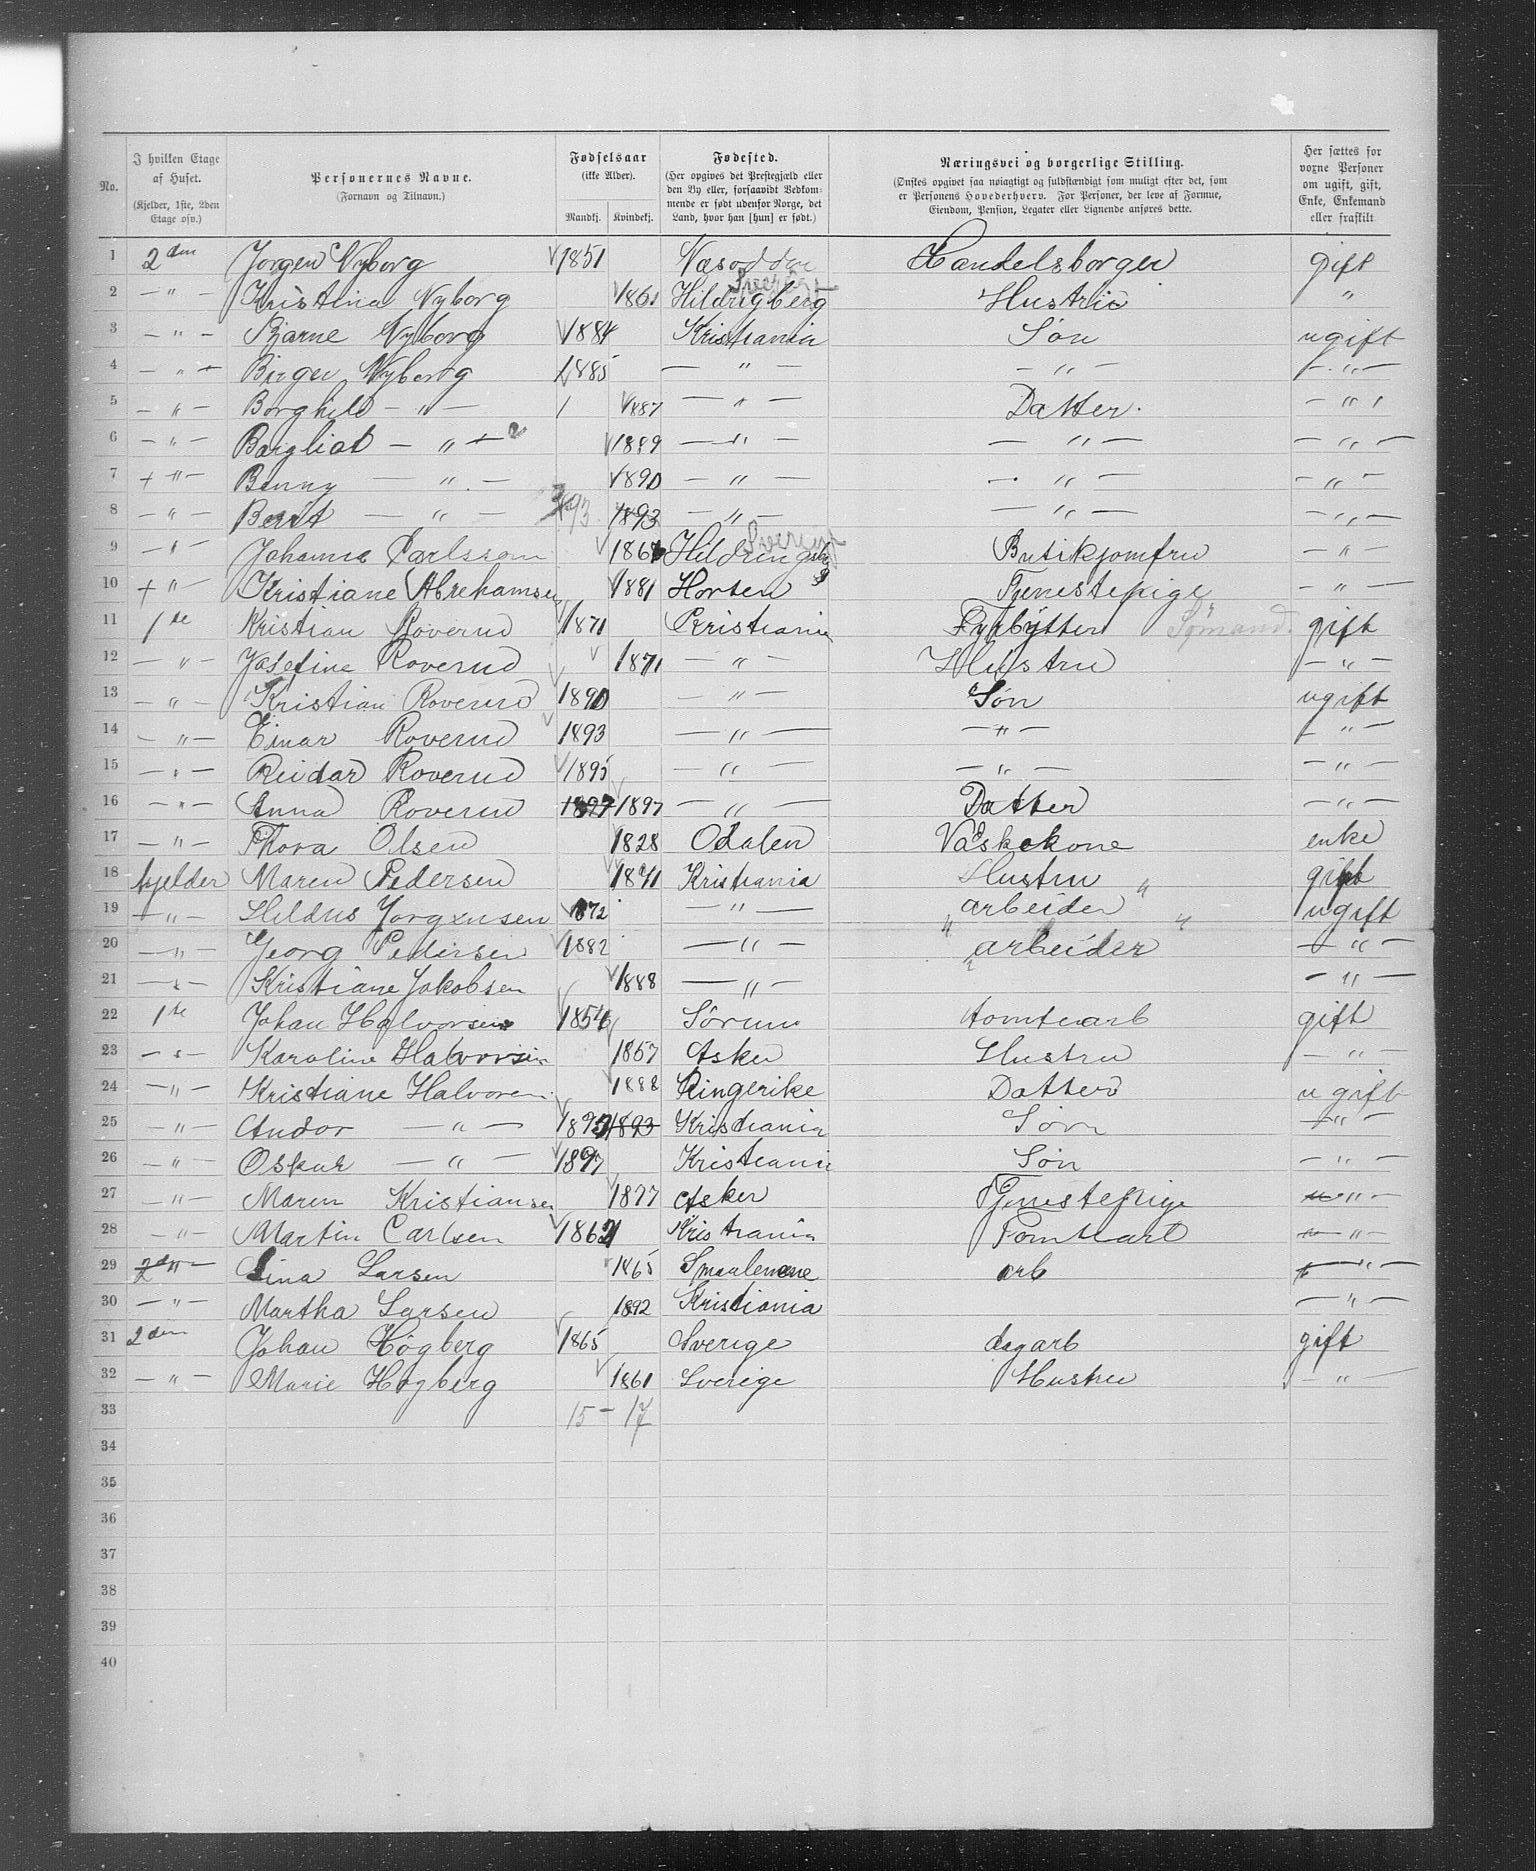 No. | I hvilken Etage af Huset. (Kjelder, 1ste, 2den Etage osv.) | Personernes Navne. (Fornavn og Tilnavn.) | Fødselsaar (ikke Alder). Mandkj. | Kvindekj. | Fødested. (Her opgives det Prestegjæld eller den By eller, forsaavidt Vedkommende er født udenfor Norge, det Land, hvor han [hun] er født.) | Næringsvei og borgerlige Stilling. (Ønskes opgivet saa nøiagtigt og fuldstændigt som muligt efter det, som er Personens Hovederhverv. For Personer, der leve af Formue, Eiendom, Pension, Legater eller Lignende anføres dette. | Her sættes for voxne Personer om ugift, gift, Enke, Enkemand eller fraskilt
1 2den Jorgen Nyborg 1851 Næsodden Handelsborger gift
2 — " — Kristina Nyborg 1861 Hildrigberg Sverige Hustrue "
3 — " — Bjarne Nyborg 1884 Kristiania Søn ugift
4 — " — Birger Nyborg 1885 — " — — " — — " —
5 — " — Borghild — " — 1887 — " — Datter. — " —
6 — " — Bargliot — " — 1889 — " — — " — — " —
7 — " — Benny — " — 1890 — " — — " — — " —
8 — " — Berit — " — 93 1893 — " — — " — — " —
9 — " — Johanna Carlsson 1867 Hildringsberg Sverige Butikjomfru — " —
10 — " — Kristiane Abrehamsen 1881 Horten Tjenestepige — " —
11 1ste Kristian Roverud 1871 Kristiania Fyrbytter Sømand. gift
12 — " — Josefine Roverud 1871 — " — Hustru — " —
13 — " — Kristian Roverud 1890 — " — Søn ugift
14 — " — Einar Roverud 1893 — " — — " — — " —
15 — " — Reidar Roverud 1895 — " — — " — — " —
16 — " — Anna Roverud 1897 1897 — " — Datter — " —
17 — " — Thora Olsen 1828 Odalen Vaskekone enke
18 kjelder Maren Pedersen 1871 Kristiania Hustru gift
19 — " — Hildus Jorgensen 1872 — " — " arbeider " ugift
20 — " — Georg Pedersen 1882 — " — " arbeider " — " —
21 — " — Kristiane Jakobsen 1888 — " — " — " —
22 1ste Johan Halvorsen 1854 Sørum tomtearb gift
23 — " — Karoline Halvorsen 1867 Asker Hustru — " —
24 — " — Kristiane Halvoren 1888 Ringerike Datter ugift
25 — " — Andor — " — 1893 1893 Kristiania Søn — " —
26 — " — Oskar — " — 1897 Kristiania Søn — " —
27 — " — Maren Kristiansen 1877 Asker Tjenestepige — " —
28 — " — Martin Carlsen 1862 Kristiania Tomtearb — " —
29 2den Lina Larsen 1865 Smaalenene arb — " —
30 — " — Martha Larsen 1892 Kristiania — " —
31 2den Johan Högberg 1865 Sverige dagarb gift
32 — " — Marie Högberg 1861 Sverige Hustru — " —
33 15 — 17
34
35
36
37
38
39
40